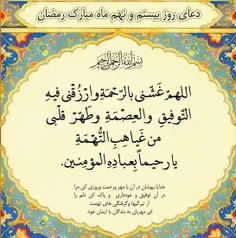 دعای روز بیستم و نهم ماه مبارک رمضان
بسم الله الرحمن الرحیم
اللهم غشنی بالرحمة وارزقنی فیه
التوفیق والعصمة وطهر قلبی
من غیاهب التهمة
یا رحیما بعباده المؤمنین.
خدایا بپوشان در آن با مهر ورحمت وروزی کن مرا
در آن توفیق و خودداری و پاک کن دلم را
از تیرگیها وگرفتگی های تهمت
ای مهربان به بندگان با ایمان خود.